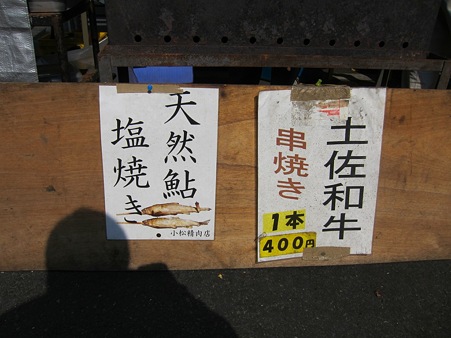 天然鮎
塩焼き
小松精肉店
土佐和牛
串焼き
1本
400円